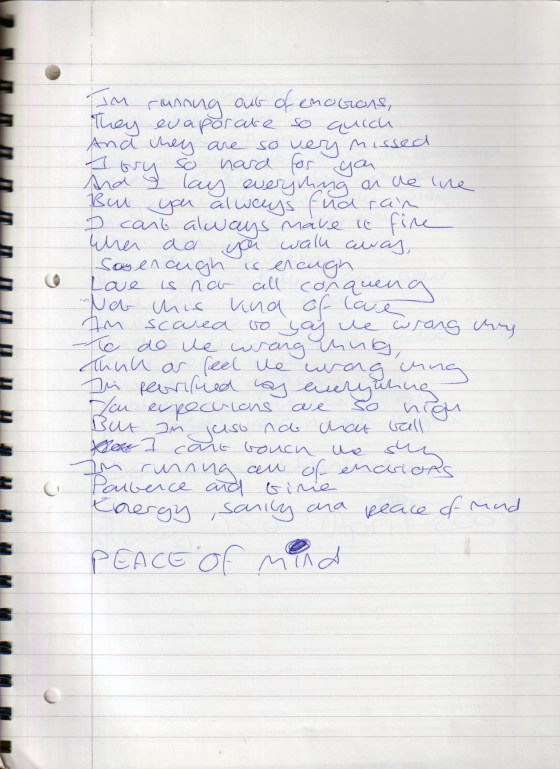 Im running out of emotions,
They evaporate so quick
And they are so very missed
I try so hard for you
And I lay everything on the line
But you always find rain
I cant always make it fine
When do you walk away,
enough is enough
Love is not all conquering
Not this kind of love
Im scared to say the wrong thing
To do the wrong things,
Think or feel the wrong thing
Im petrified by everything
Your expections are so high
But Im just not that tall
I cant touch the sky
Im running out of emotions
Patience and time
Energy, sanity and peace of mind
PEACE OF MIND